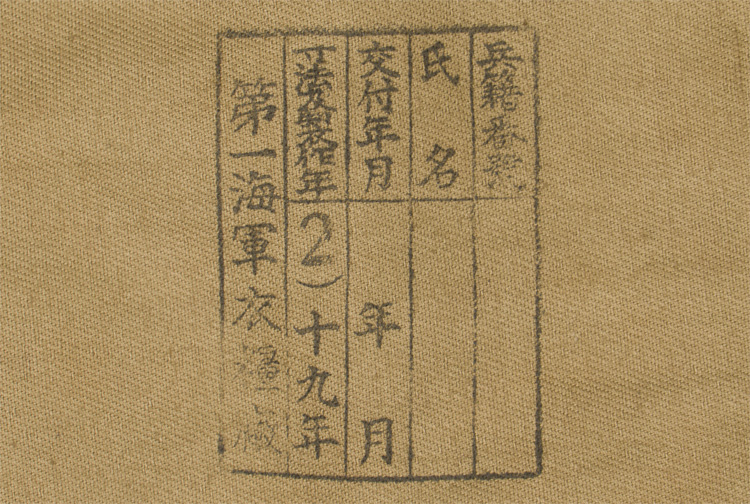 兵籍番號
氏名
交付年月 年 月
寸法及製作年 2) 十九年
第一海軍衣糧廠